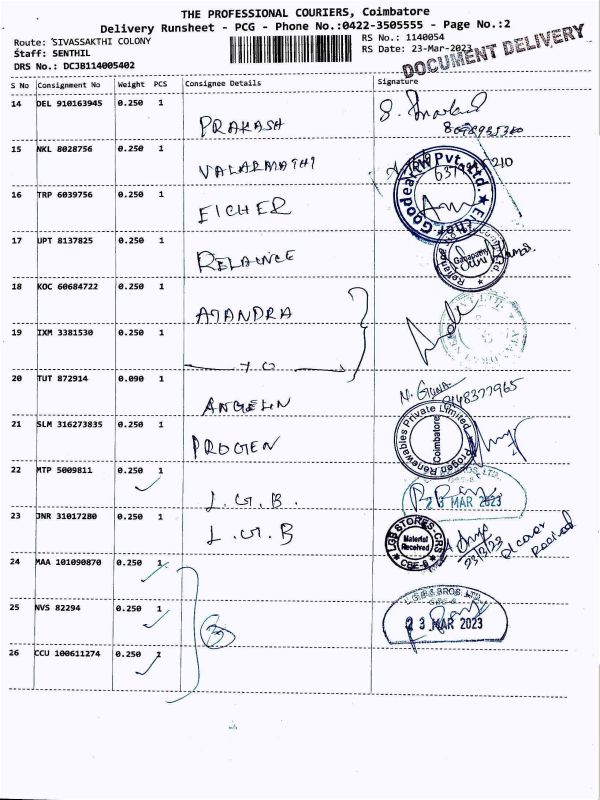 THE PROFESSIONAL COURIERS, Coimbatore
Delivery Runsheet - PCG - Phone No.:0422-3505555 - Page No.:2
Route: SIVASSAKTHI COLONY
RS No.: 1140054
Staff: SENTHIL
RS Date: 23-Mar-2023
DRS No.: DCJB114005402
DOCUMENT DELIVERY
S No Consignment No Weight PCS Consignee Details Signature
14 DEL 910163945 0.250 1 PRAKASH
15 NKL 8028756 0.250 1 VALARMATHI
16 TRP 6039756 0.250 1 EICHER
Goodearth Pvt. Ltd. ★ Eicher
17 UPT 8137825 0.250 1 RELAINCE
18 KOC 60684722 0.250 1 ATANDRA
19 IXM 3381530 0.250 1
20 TUT 872914 0.090 1 ANGELIN
N. Guna
9148377965
21 SLM 316273835 0.250 1 PROGEN
Progen Renewables Private Limited
Coimbatore
22 MTP 5009811 0.250 1 L.G.B.
23 MAR 2023
23 JNR 31017280 0.250 1 L.G.B
LGB STORES-CRS
Material
Received
CBE-6
23/3/23
cover
Received
24 MAA 101090870 0.250 1
L.G.B & BROS. LTD.
CBE-6
25 NVS 82294 0.250 1
23 MAR 2023
26 CCU 100611274 0.250 1